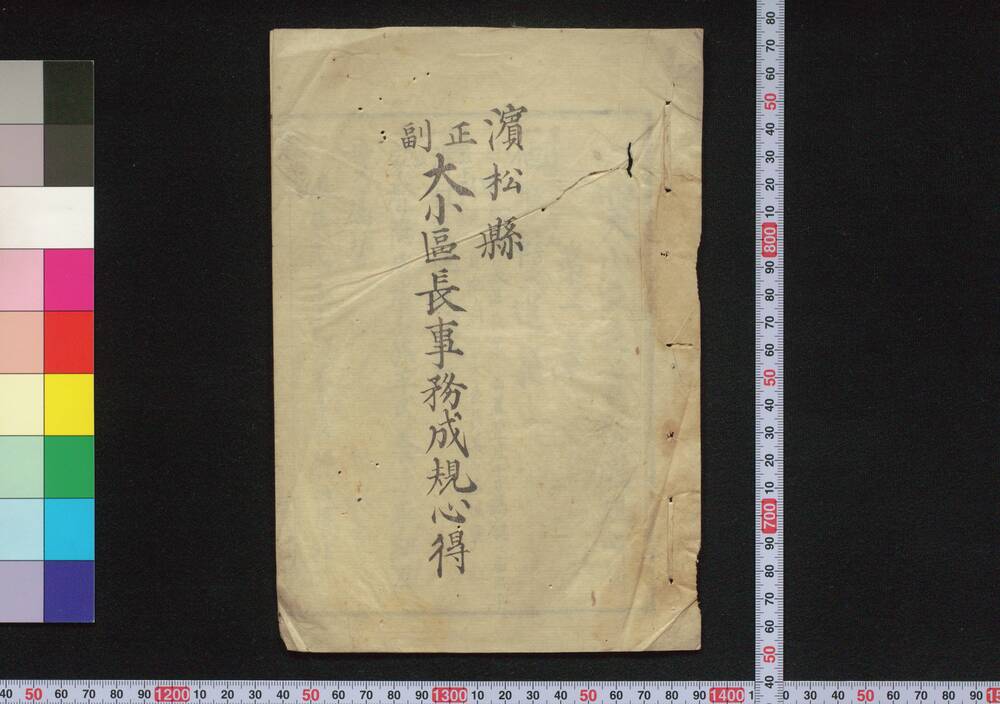 濱松縣
正副大小區長事務成規心得
80
70
60
50
40
30
20
10
800
90
80
70
60
50
40
30
20
10
700
90
80
70
60
50
40
40 50 60 70 80 90 1200 10 20 30 40 50 60 70 80 90 1300 10 20 30 40 50 60 70 80 90 1400 1 0 30 40 50 60 70 80 90 15